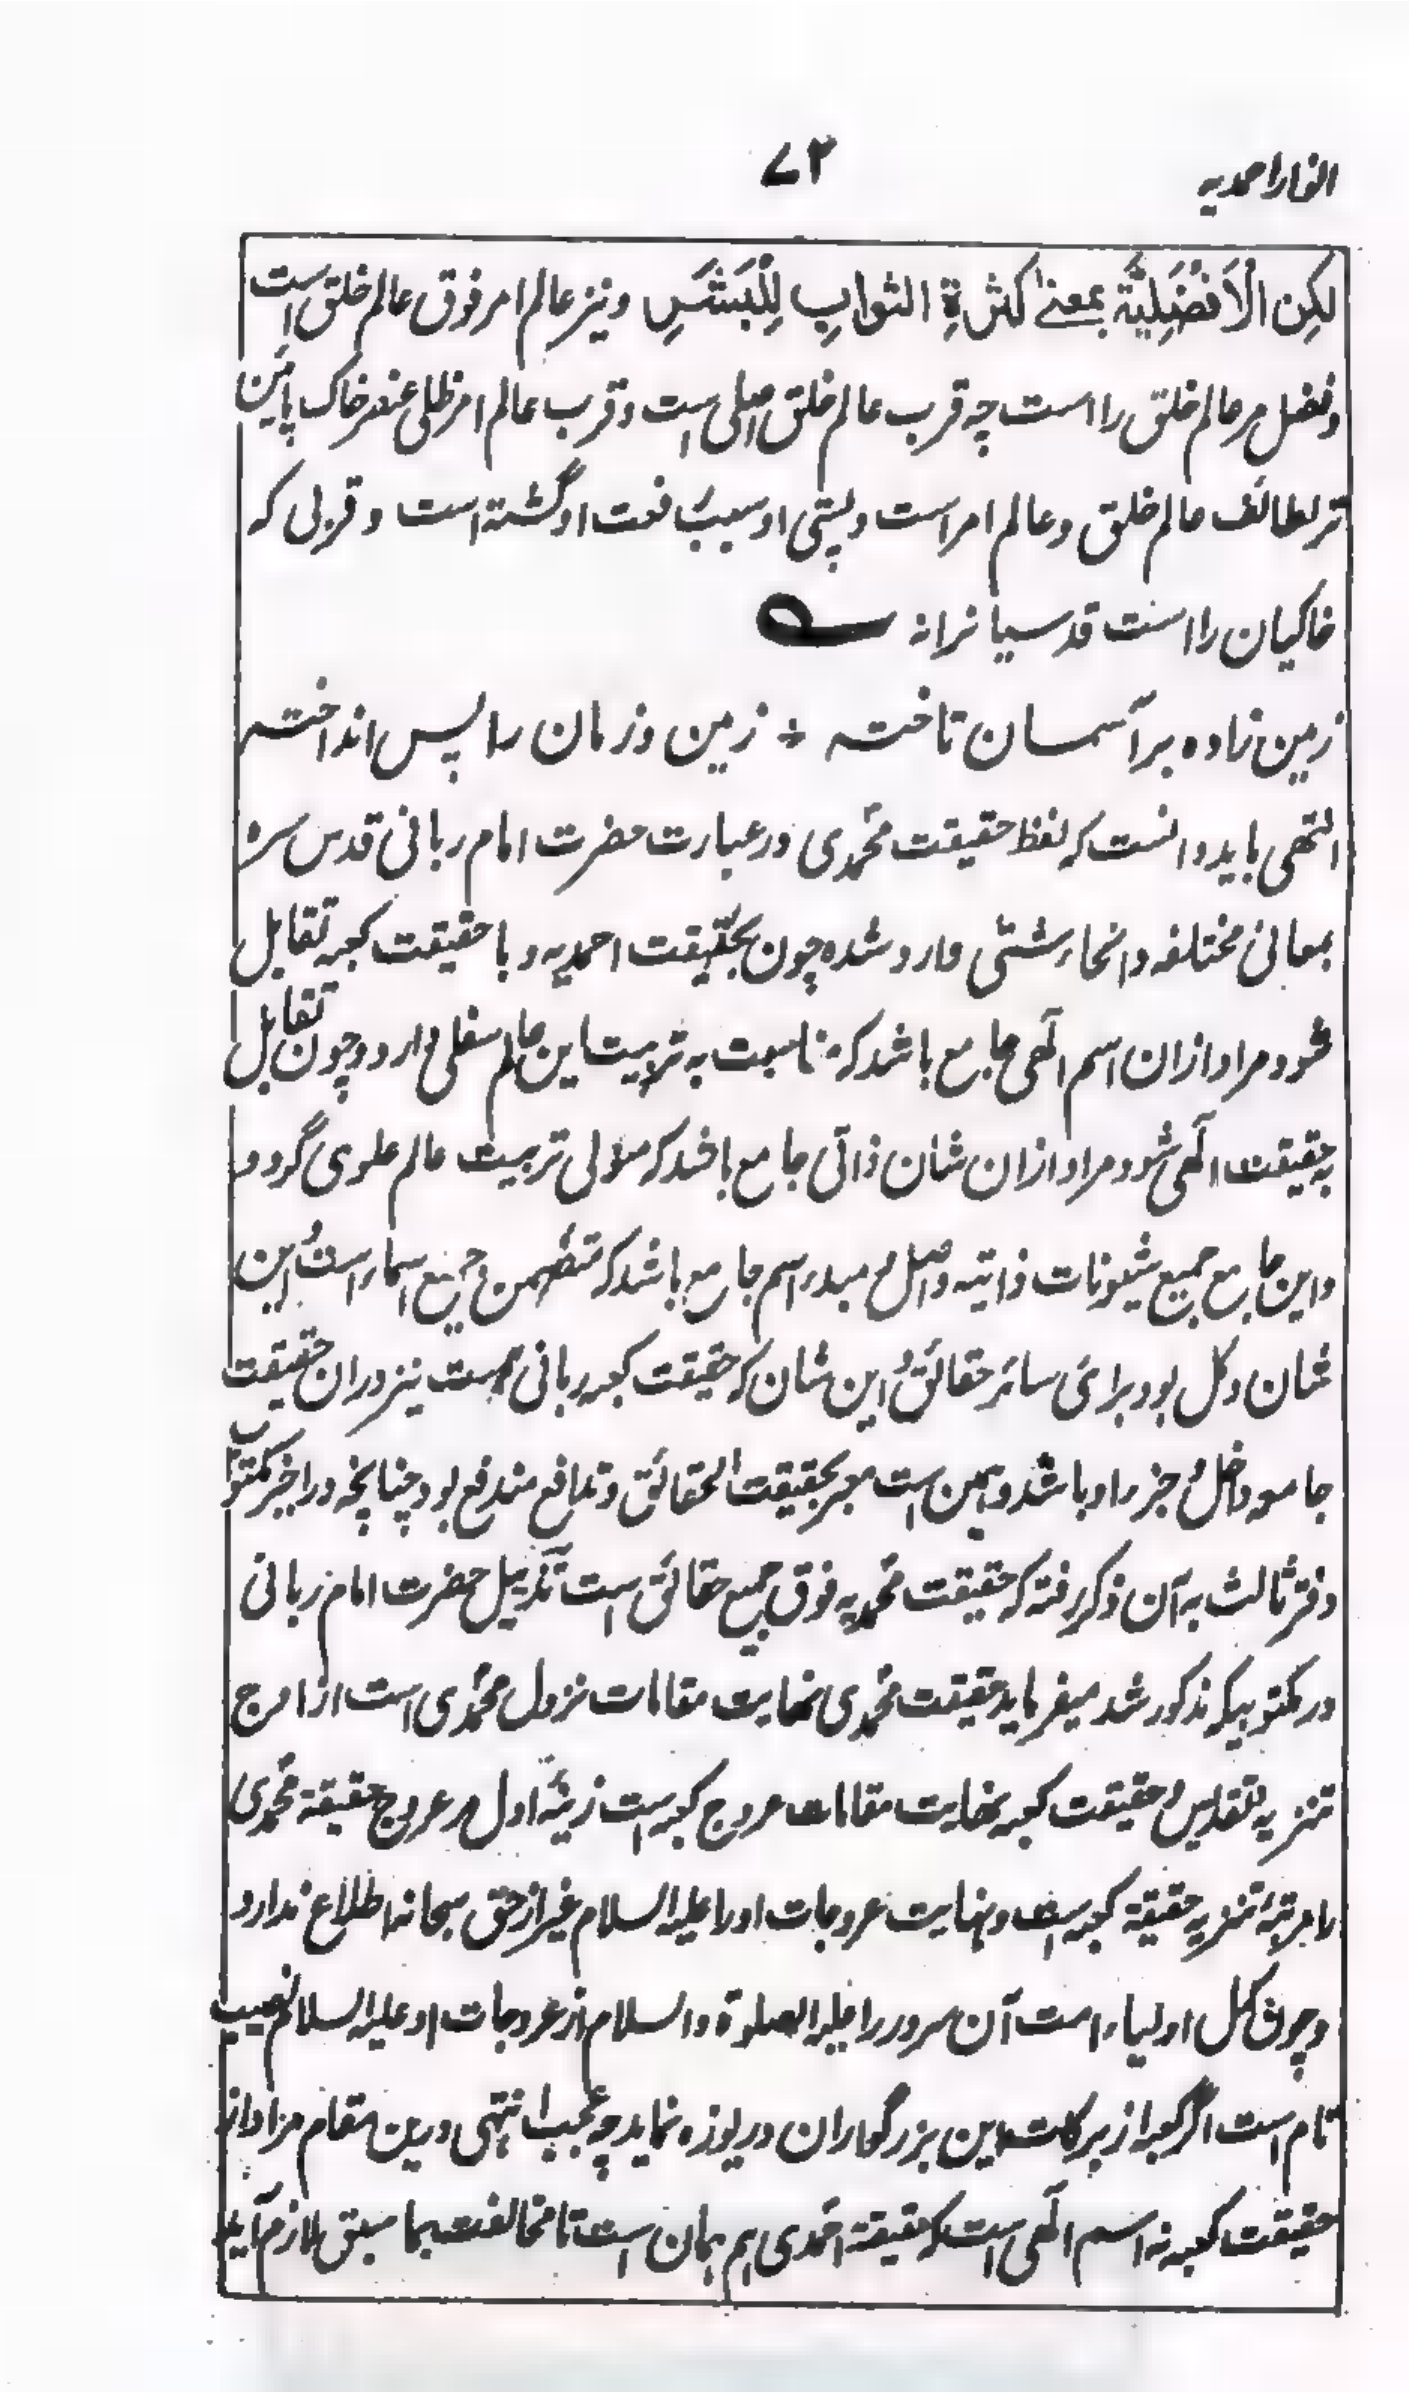 انوار احمدیه
۷۲
لٰکِن الْاَفْضَلِیَّة بمعنے کثرةِ الثوابِ لِلْبَشَرِ و نیز عالم امر فوق عالم خلق است
و فضل مر عالم خلق را است چه قرب عالم خلق اصلی است و قرب عالم امر ظلی عنصر خاک پائین
تر لطائف عالم خلق و عالم امر است و پستی او سبب رفعت او گشته است و قربی که
خاکیان را است قدسیانرا نه
زمین زاده بر آسمان تاخته ÷ زمین و زمان را پس انداخته
انتهی باید دانست که لفظ حقیقت محمّدی در عبارت حضرت امام ربانی قدس سره
بمعانی مختلفه و انحاء شتّی وارد شده چون بحقیقت احمدیه و با حقیقت کعبه تقابل
شود مراد ازان اسم الٓهی جامع باشد که مناسبت به تربیت این عالم سفلی دارد و چون تقابل
بحقیقت الٓهی شود مراد ازان شان ذاتی جامع باشد که مولی تربیت عالم علوی گردد و
و این جامع جمیع شیونات ذاتیه و اصل و مبدء اسم جامع باشد که متضمن جمیع اسماء است و این
شان و کل بود برای سائر حقائق و این شان که حقیقت کعبه ربانی است نیز دران حقیقت
جامعه داخل و جزء او باشد و همین است معبر بحقیقت الحقائق و تدافع مندفع بود چنانچه در اخیر مکتوب
دفتر ثالث به آن ذکر رفته که حقیقت محمدیه فوق جمیع حقائق است تذییل حضرت امام ربانی
در مکتوبیکه مذکور شد میفرماید حقیقت محمّدی نهایت مقامات نزول محمّدی است از اوج
تنزیه و تقدیس و حقیقت کعبه نهایت مقامات عروج کعبه است زینهٔ اول مر عروج حقیقة محمّدی
را مرتبهٔ تنزیه حقیقة کعبه است و نهایت عروجات او را علیه السلام غیر از حق سبحانه اطلاع ندارد
و چون کل اولیاء امت آن سرور را علیه الصلوة و السلام از عروجات او علیه السلام نصیب
تام است اگر کعبه از برکات این بزرگواران دریوزه نماید چه عجب انتهی درین مقام مراد از
حقیقت کعبه نه اسم الٓهی است که حقیقة احمّدی هم همان است تا مخالفت بما سبق لازم آید